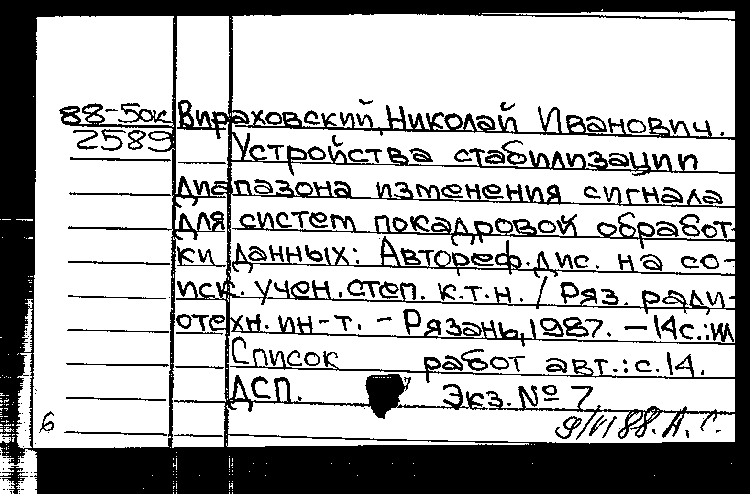 88-5ок Вираховский, Николай Иванович.
2589 Устройства стабилизации
диапазона изменения сигнала
для систем покадровой обработ-
ки данных: Автореф. дис. на со-
иск. учен. степ. к.т.н. / Ряз. ради-
отехн. ин-т. – Рязань, 1987. – 14с.: ил
Список работ авт.: с. 14.
ДСП. Экз. № 7
6 9/VI 88. А. С.